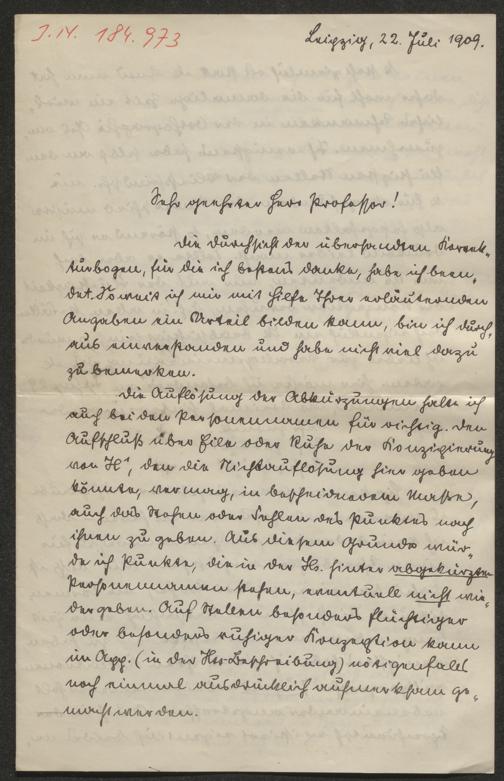 I.N. 184.973
Leipzig, 22. Juli 1909.
Sehr geehrter Herr Professor!
Die Durchsicht der übersandten Korrek-
turbogen, für die ich bestens danke, habe ich been-
det. Soweit ich mir mit Hilfe Ihrer erläuternden
Angaben ein Urteil bilden kann, bin ich durch-
aus einverstanden und habe nicht viel dazu
zu bemerken.
Die Auflösung der Abkürzungen halte ich
auch bei den Personennamen für richtig. Den
Aufschluß über Eile oder Ruhe der Konzipierung
von H¹, den die Nichtauflösung hier geben
könnte, vermag, in bescheidenerem Maße,
auch das Stehen oder Fehlen des Punktes noch
ihnen zu geben. Aus diesem Grunde wür-
de ich Punkte, die in der Hs. hinter abgekürzten
Personennamen stehen, eventuell nicht wie-
dergeben. Auf Stellen besonders flüchtiger
oder besonders ruhiger Konzeption kann
im App. (in der Hss-Beschreibung) nötigenfalls
noch einmal ausdrücklich aufmerksam ge-
macht werden.